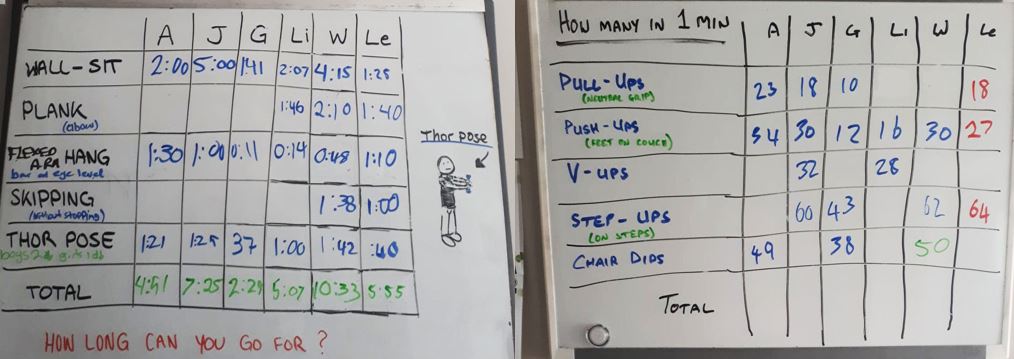 A J G Li W Le
WALL-SIT 2:00 5:00 1:41 2:07 4:15 1:25
PLANK 1:46 2:10 1:40
(elbow)
FLEXED ARM HANG 1:30 1:00 0:11 0:14 0:48 1:10
bar at eye level
SKIPPING 1:38 1:00
(without stopping)
THOR POSE 1:21 1:25 37 1:00 1:42 :40
boys 2 girls 1
TOTAL 4:51 7:25 2:29 5:07 10:33 5:55
HOW LONG CAN YOU GO FOR?
Thor pose
HOW MANY IN 1 MIN A J G Li W Le
PULL-UPS 23 18 10 18
(NEUTRAL GRIP)
PUSH-UPS 54 30 12 16 30 27
(FEET ON COUCH)
V-UPS 32 28
STEP-UPS 60 43 62 64
(ON STEPS)
CHAIR DIPS 49 38 50
TOTAL